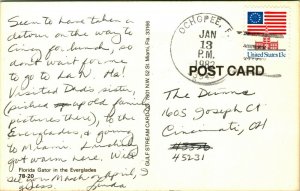 Seem to have taken a
detour on the way to
for lunch, so
don't wait for me
to go to La N. Ha!
Visited Dad's sister,
(picked up old family
pictures there), to the
Everglades, & going
to Miami.
got warm here. Will
see you March or April,
Linda
Florida Gator in the Everglades
7B-20
GULF STREAM CARD
Miami, Fla. 33166
OCHOPEE, F
JAN
13
P.M.
1982
USA 13c
POST CARD
The
1605 Joseph Ct
Cincinnati, OH
45231